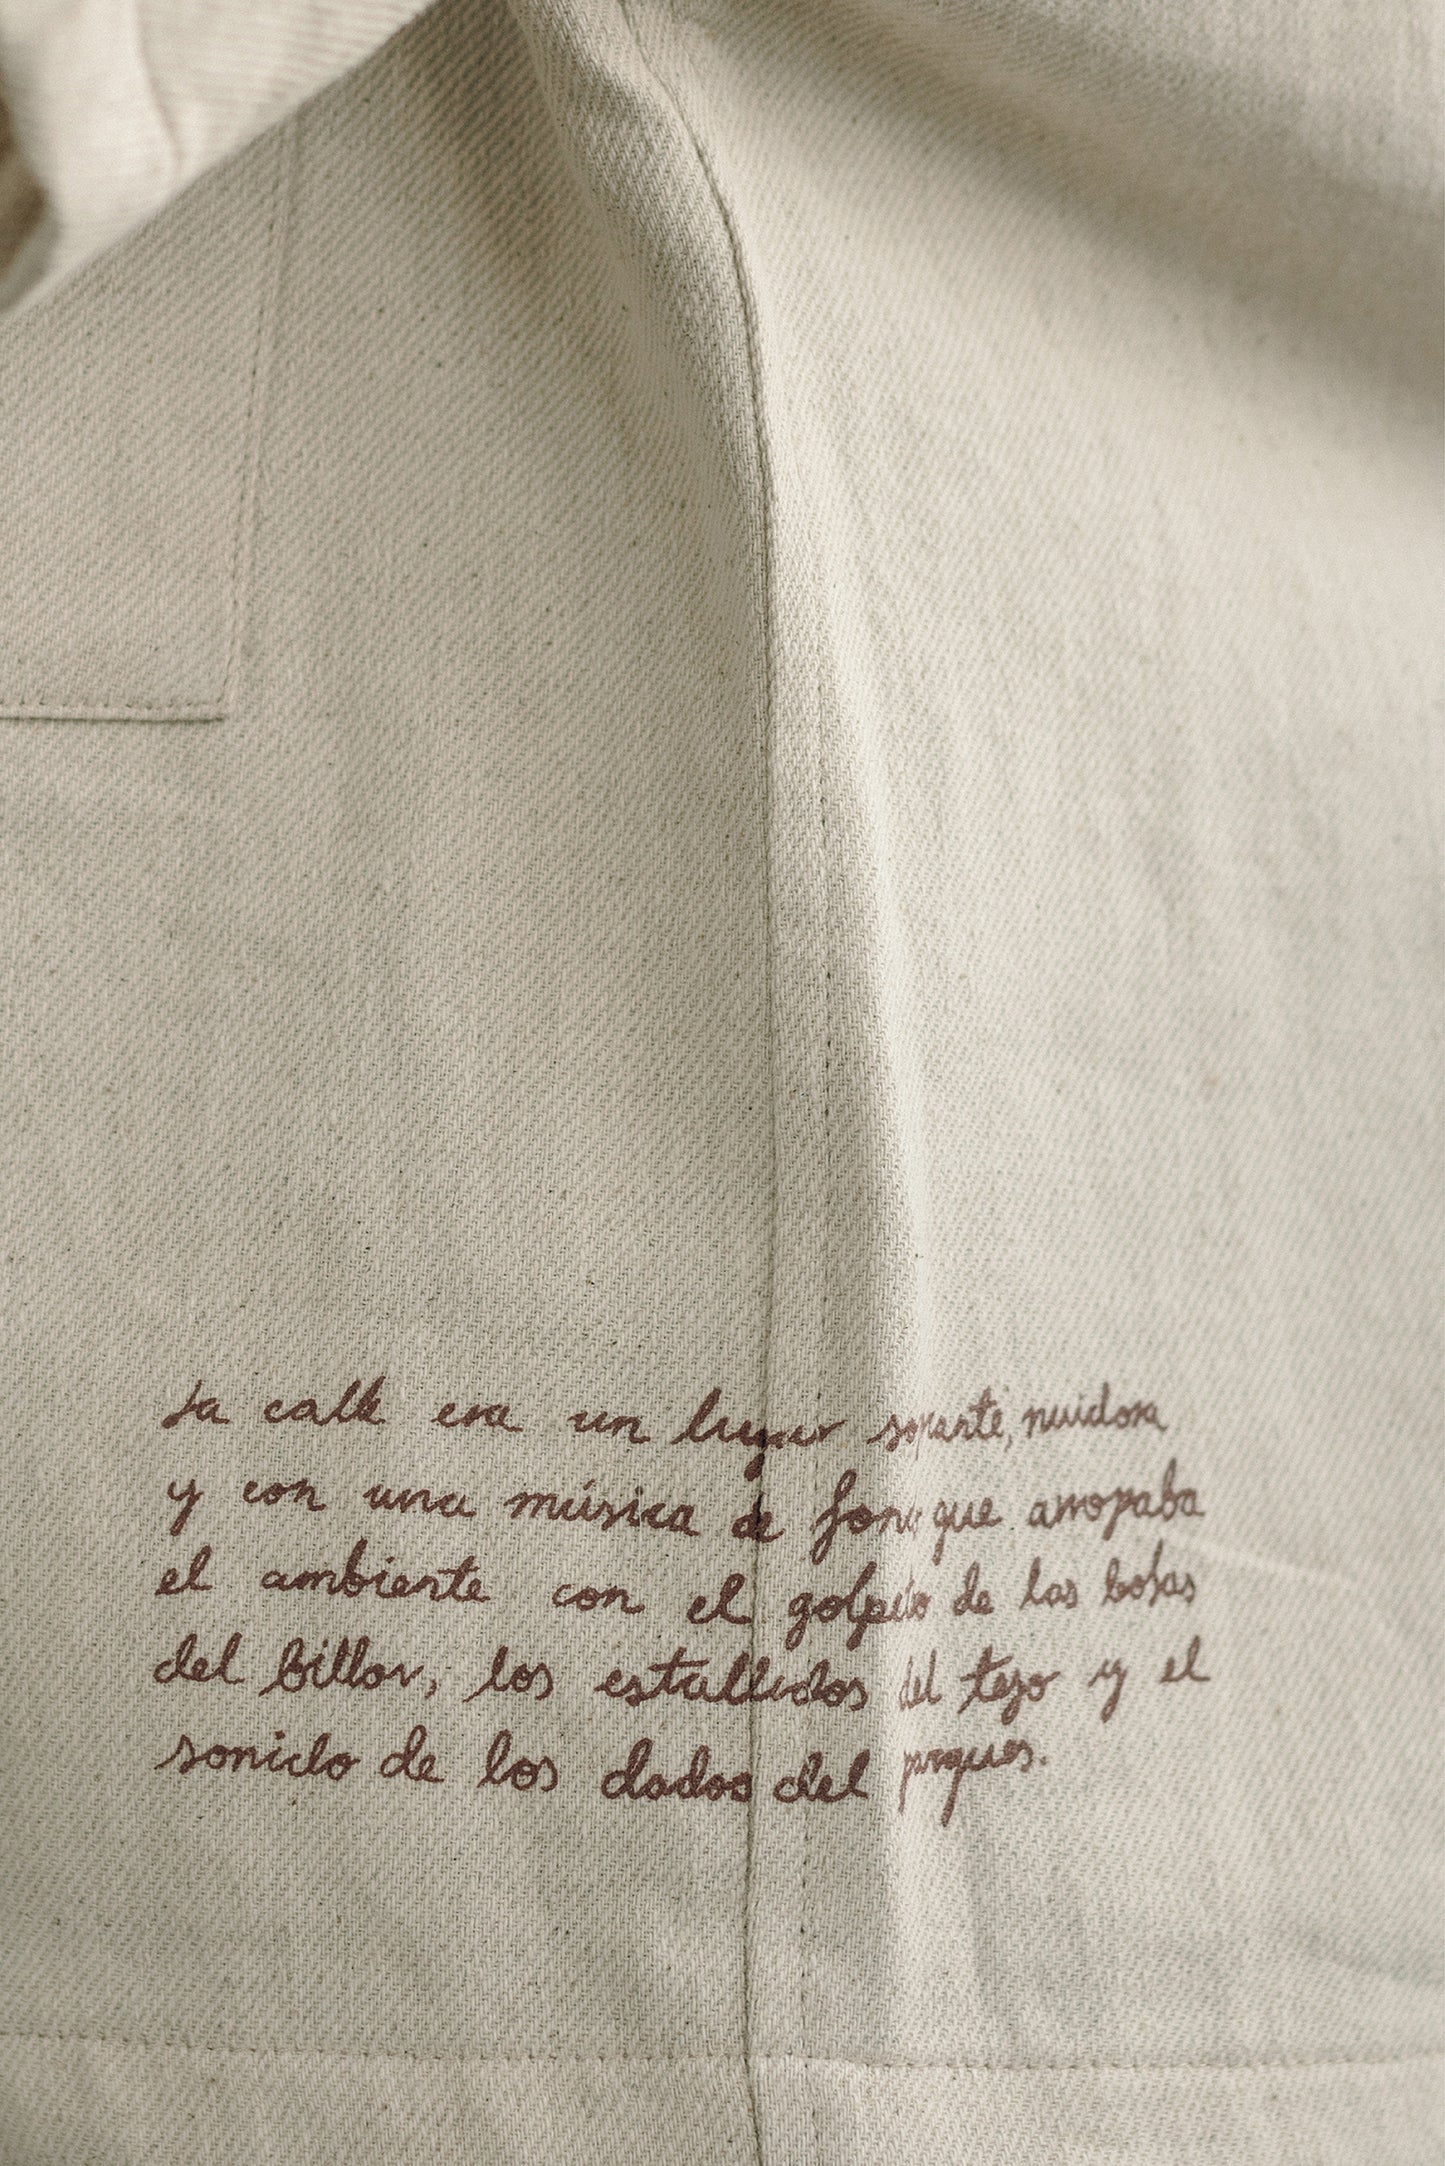 La calle era un lugar soparte, ruidosa
y con una música de fono que arropaba
el ambiente con el golpeito de las bolas
del billar, los estallidos del tejo y el
sonido de los dados del parques.